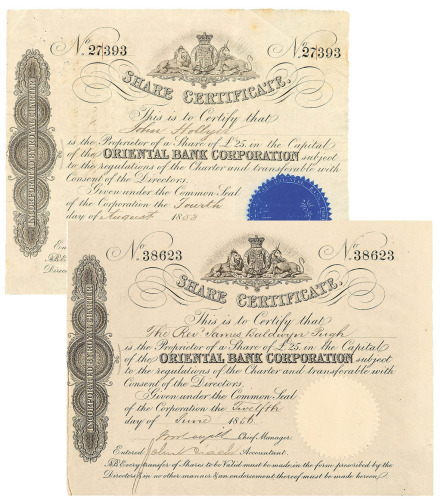 No. 27393 No. 27393
SHARE CERTIFICATE.
This is to Certify that
John Hollyer
is the Proprietor of a Share of £25. in the Capital
of the ORIENTAL BANK CORPORATION subject
to the regulations of the Charter and transferable with
Consent of the Directors.
Given under the Common Seal
of the Corporation the Fourth
day of August 1853
INCORPORATED BY ROYAL CHARTER
No. 38623 No. 38623
SHARE CERTIFICATE.
This is to Certify that
The Revd. James Baldwyn Leigh
is the Proprietor of a Share of £25. in the Capital
of the ORIENTAL BANK CORPORATION subject
to the regulations of the Charter and transferable with
Consent of the Directors.
Given under the Common Seal
of the Corporation the Twelfth
day of June 1866
Chief Manager.
Entered Accountant.
N.B. Every transfer of Shares to be Valid must be made in the form prescribed by the
Directors, in no other manner & an endorsement thereof must be made hereon.
INCORPORATED BY ROYAL CHARTER